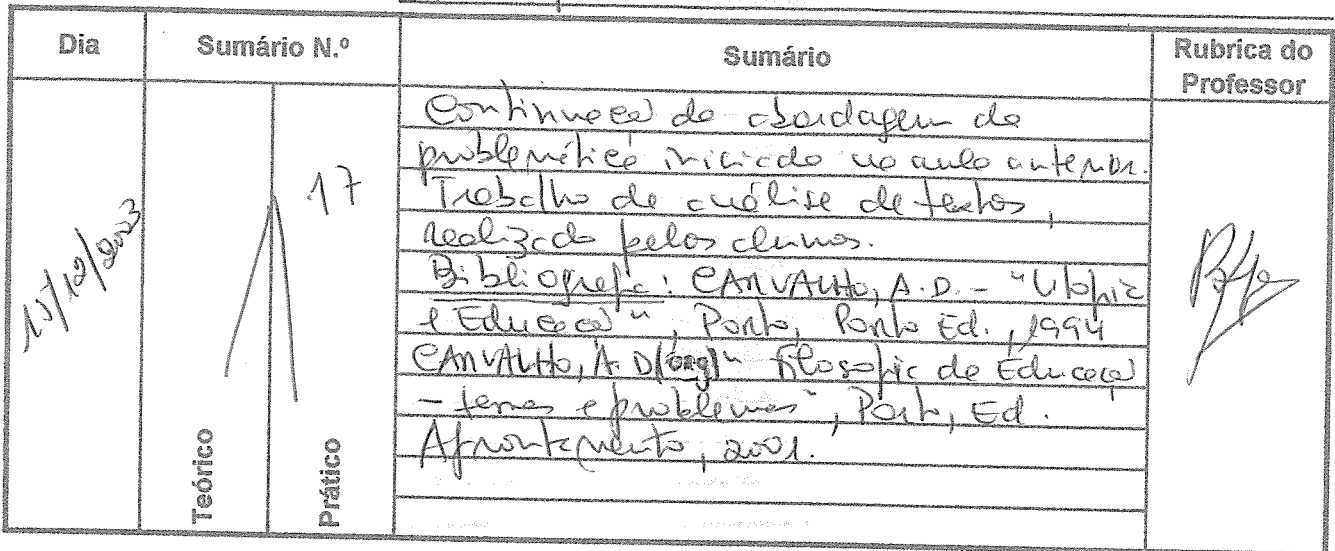 Dia
Sumário N.º
Sumário
Rubrica do
Professor
15/12/2003
17
Teórico
Prático
Continuação da abordagem da
problemática iniciada na aula anterior.
Trabalho de análise de textos,
realizado pelos alunos.
Bibliografia: CARVALHO, A.D. - "Utopia
e Educação", Porto, Porto Ed., 1994
CARVALHO, A. D (org) "Filosofia da Educação
- temas e problemas", Porto, Ed.
Afrontamento, 2001.